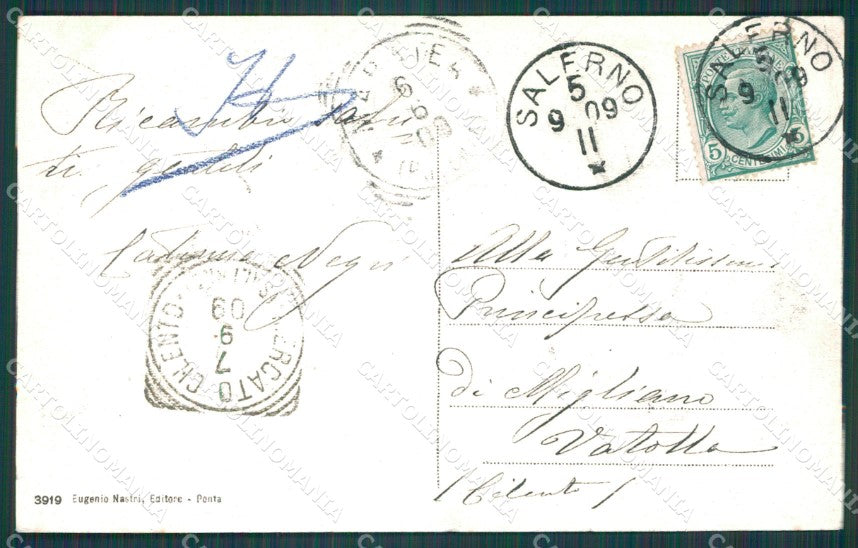 Ricambio saluti
gentili
Negri
SALERNO
5
09
9
11
SALERNO
5
09
9
11
5 CENTESIMI 5
Alla Gentilissima
Principessa
di Migliano
Vatolla
(Cilento)
MERCATO CILENTO
09
9
7
3919 Eugenio Nastri, Editore - Penta
CARTOLINOMANIA